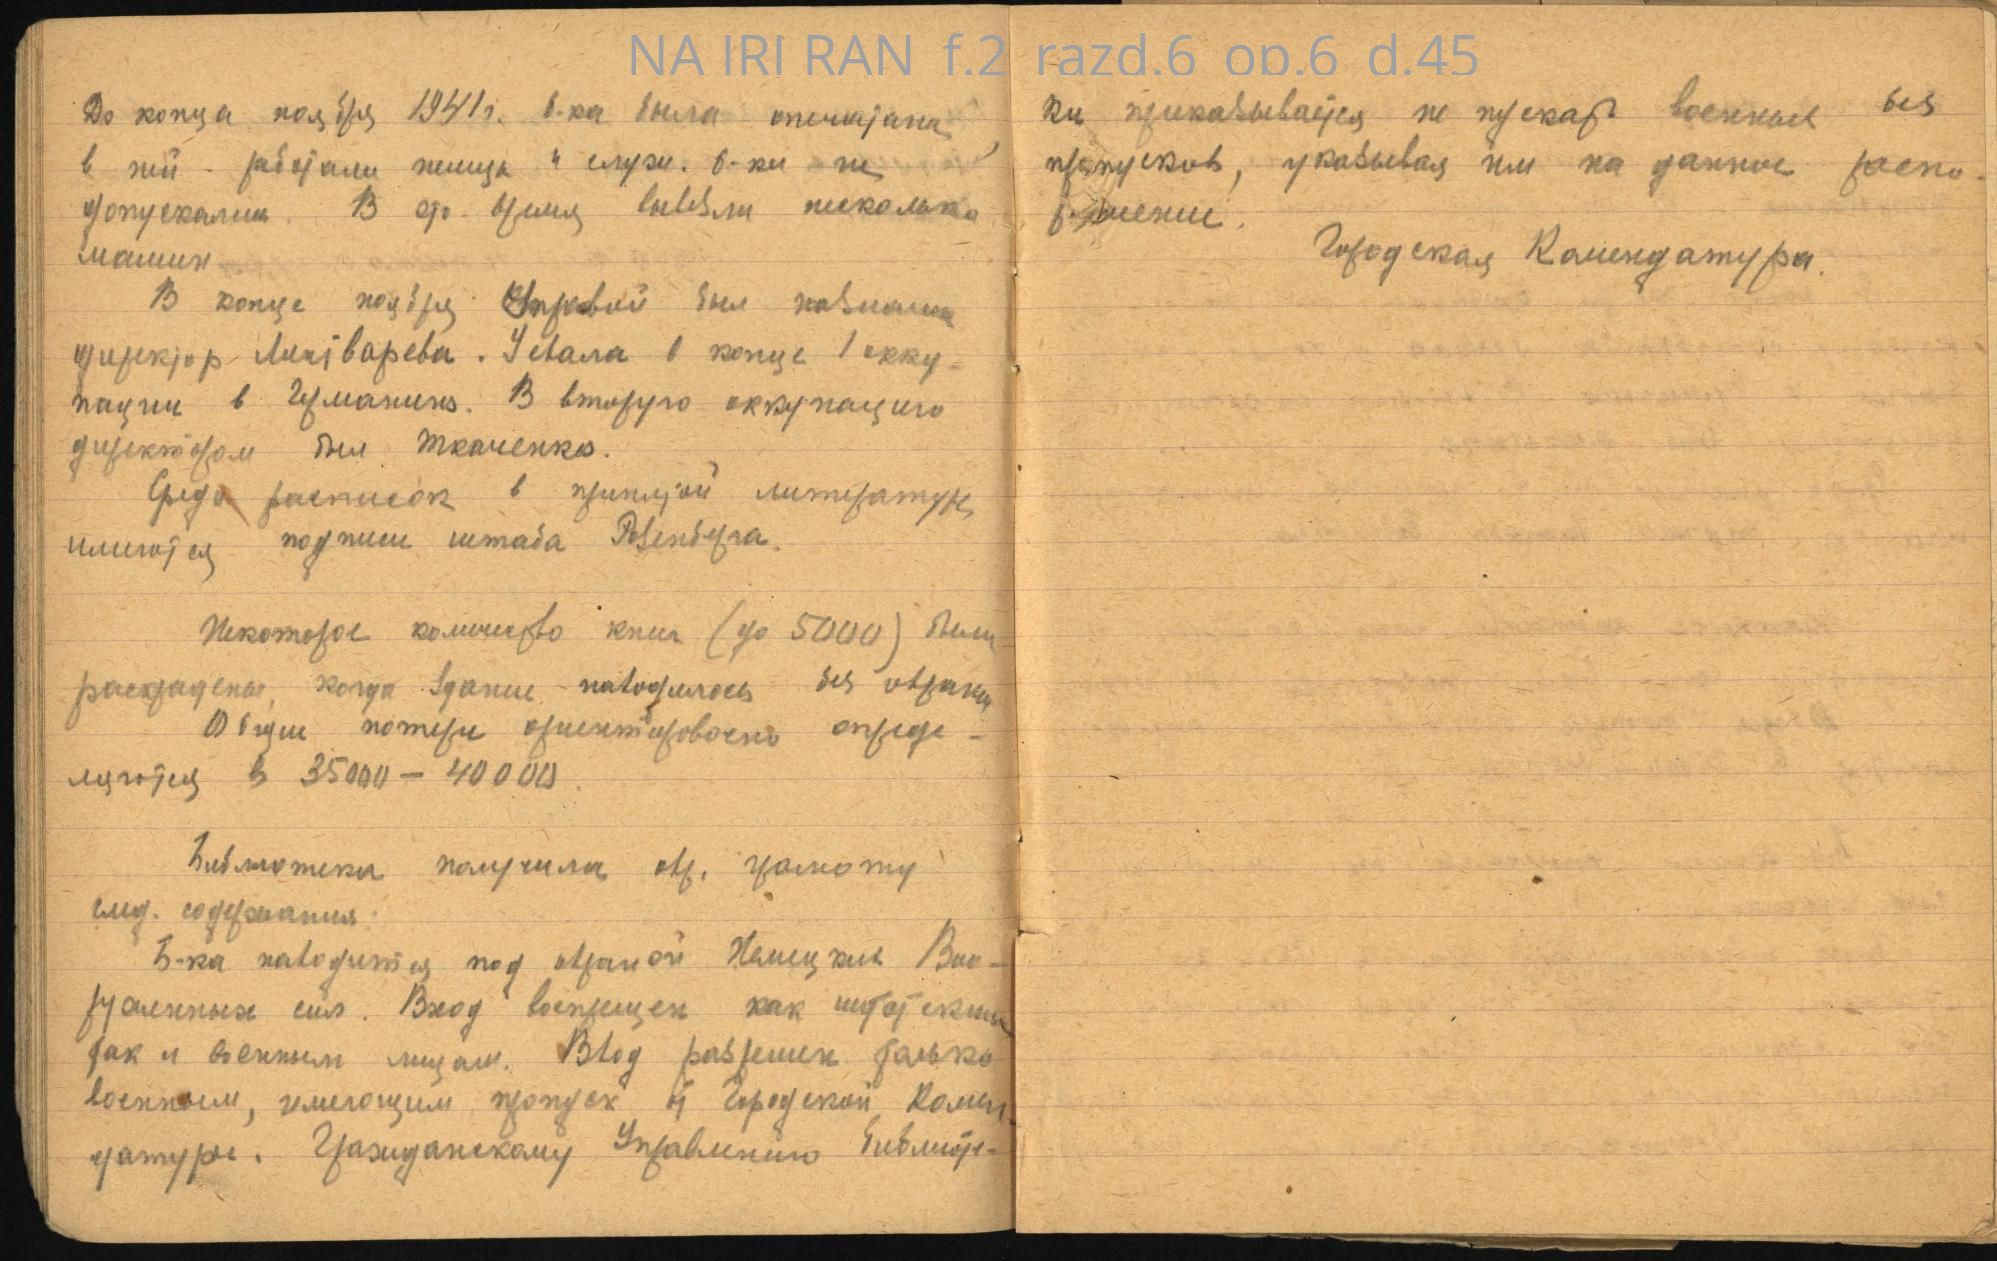 NA IRI RAN f.2 razd.6 op.6 d.45
До конца ноября 1941 г. б-ка была опечатана,
в ней работали немцы и служ. б-ки не
допускались. В это время вывезли несколько
машин
В конце ноября Управой был назначен
директор Линтварева. Уехала в конце 1 окку-
пации в Германию. В вторую оккупацию
директором был Ткаченко.
Среди расписок в принятой литературе
имеются подписи штаба Розенберга.
Некоторое количество книг (до 5000) были
раскрадены, когда здание находилось без охраны
Общие потери ориентировочно опреде-
ляются в 35000 – 40000.
Библиотека получила охр. грамоту
след. содержания:
Б-ка находится под охраной Немецких Воо-
руженных сил. Вход воспрещен как штатским
так и военным лицам. Вход разрешен только
военным, имеющим пропуск от Городской Комен-
датуры. Гражданскому Управлению библиоте-
ки приказывается не пускать военных без
пропусков, указывая им на данное распо-
ряжение.
Городская Комендатура.